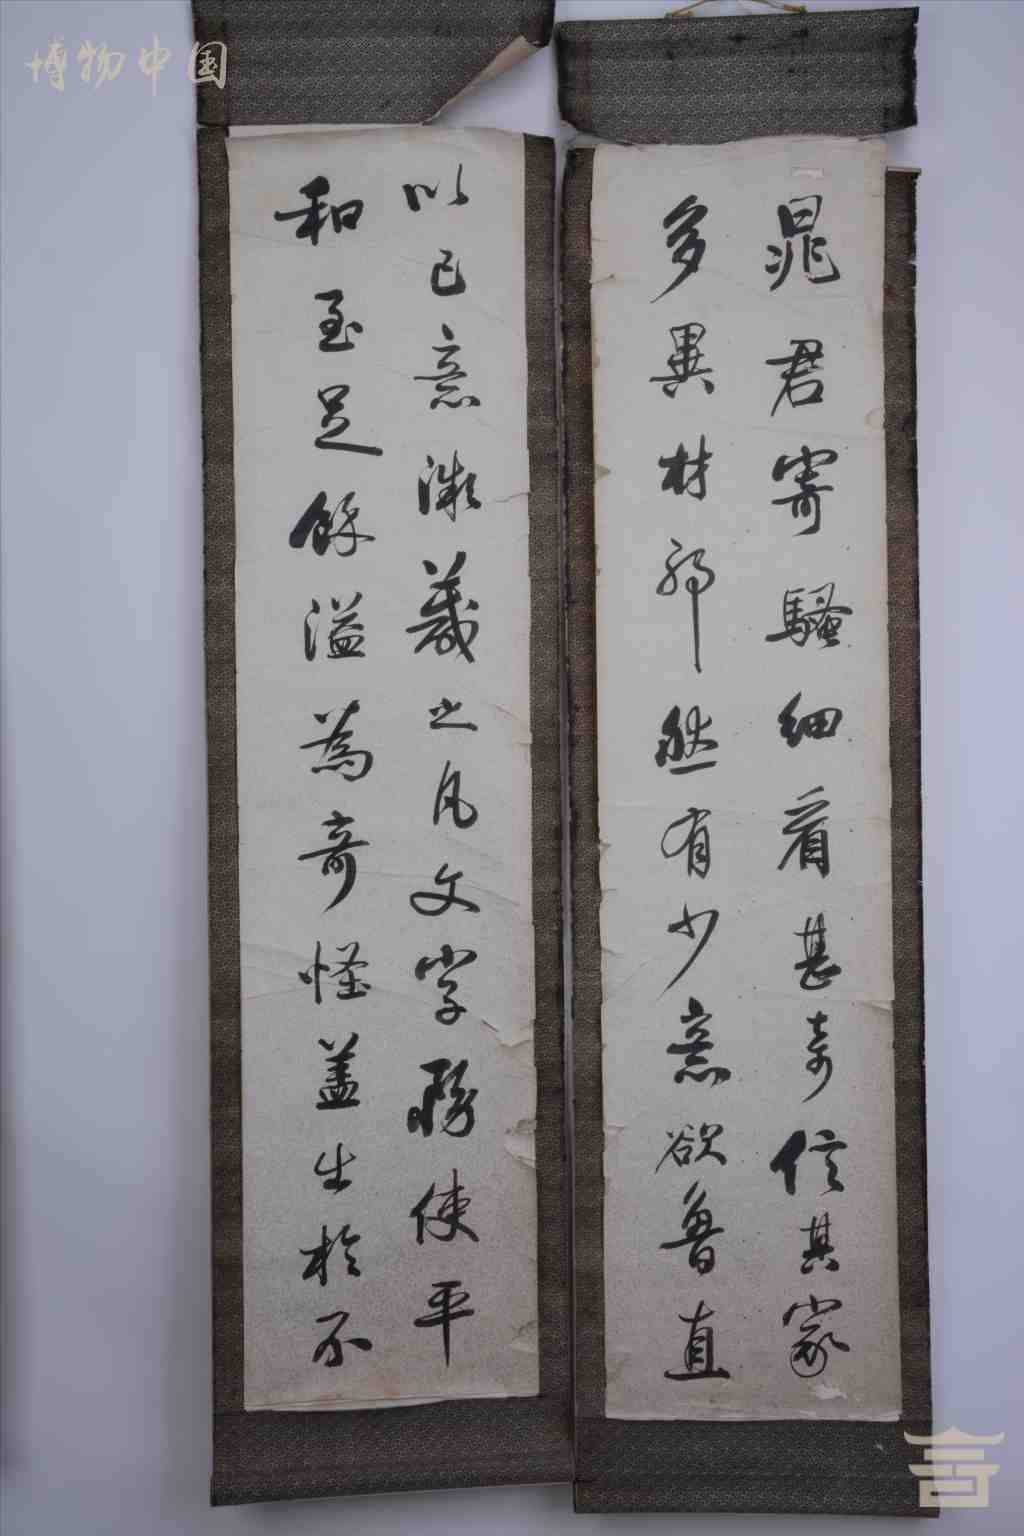 博物中国
晁君寄騷細看甚奇信其家
多異材邪然有少意欲魯直
以己意微箴之凡文字務使平
和至足餘溢為奇怪盖出於不